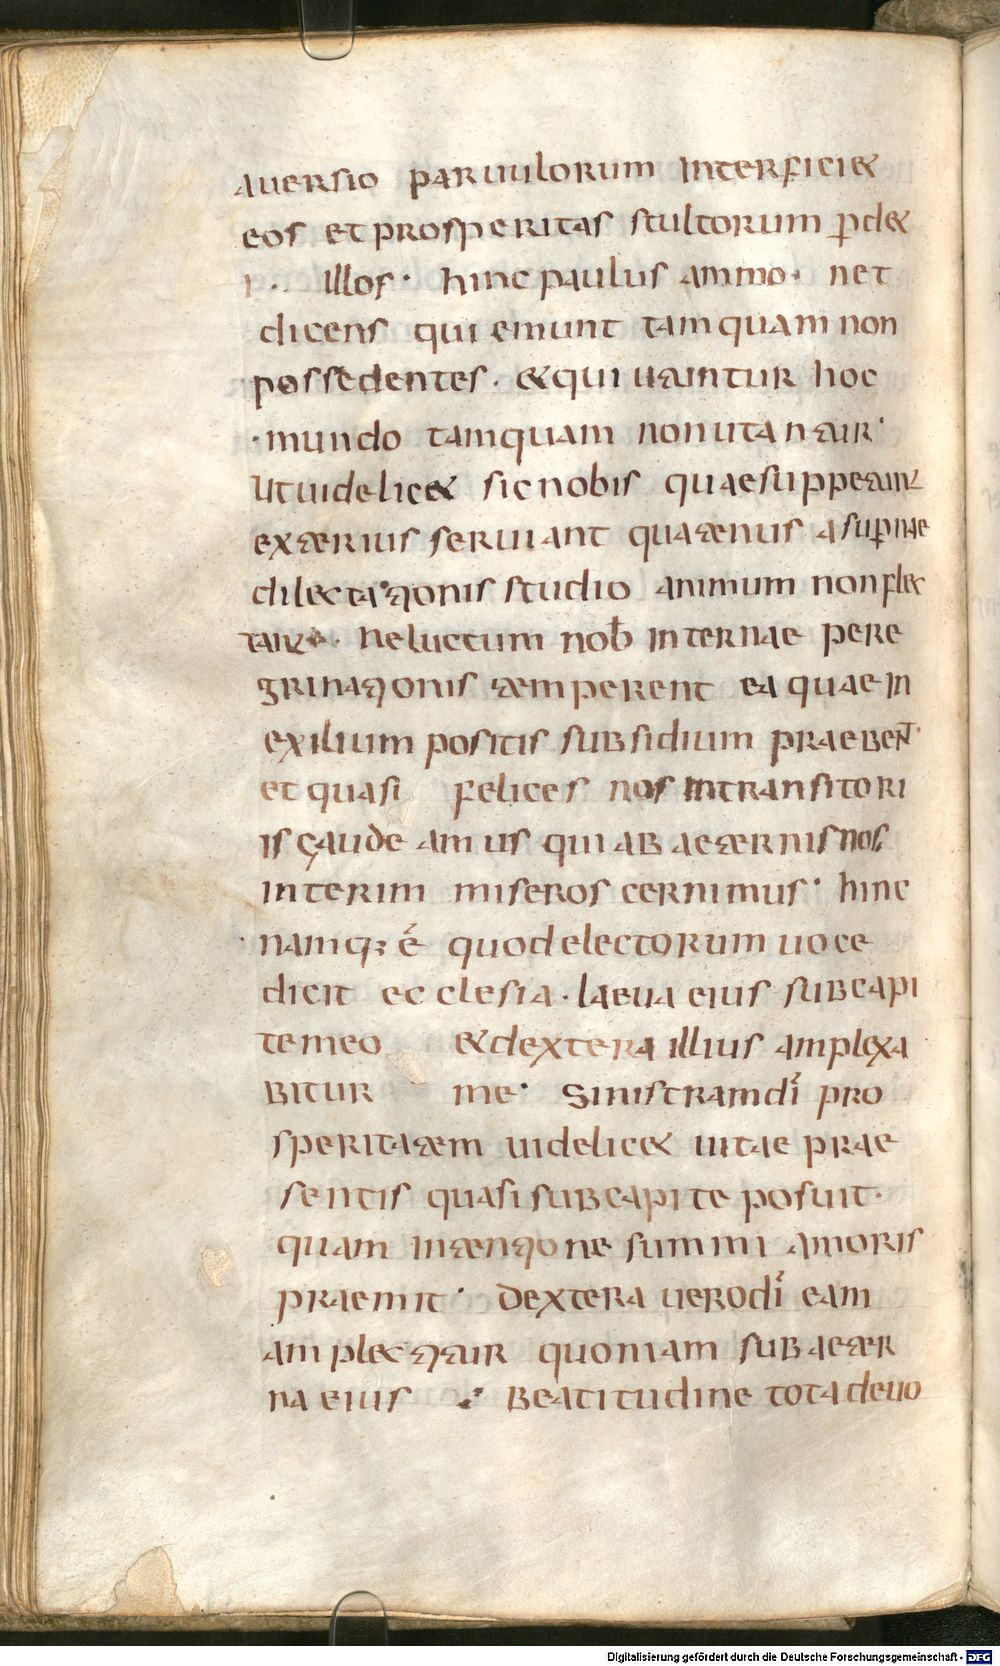 auersio paruulorum interficiet
eos et prosperitas stultorum pdet
illos · hinc paulus ammo· net
dicens qui emunt tamquam non
possedentes · et qui utuntur hoc
· mundo tamquam non utantur ·
ut uidelicet sic nobis quae suppetunt
exterius seruiant quatenus a supnae
dilectationis studio animum non flec
tant · ne luctum nob internae pere
grinationis temperent ea quae in
exilium positis subsidium praebent ·
et quasi felices nos in transitori
is gaudeamus qui ab aeternis nos
interim miseros cernimus · hinc
· namq; é quod electorum uoce
dicit ecclesia · laeua eius sub capi
te meo et dextera illius amplexa
bitur me · Sinistram di pro
speritatem uidelicet uitae prae
sentis quasi sub capite posuit ·
quam intentione summi amoris
praemit · dextera uero di eam
amplectitur quoniam sub aeter
na eius beatitudine tota deuo
Digitalisierung gefördert durch die Deutsche Forschungsgemeinschaft - DFG